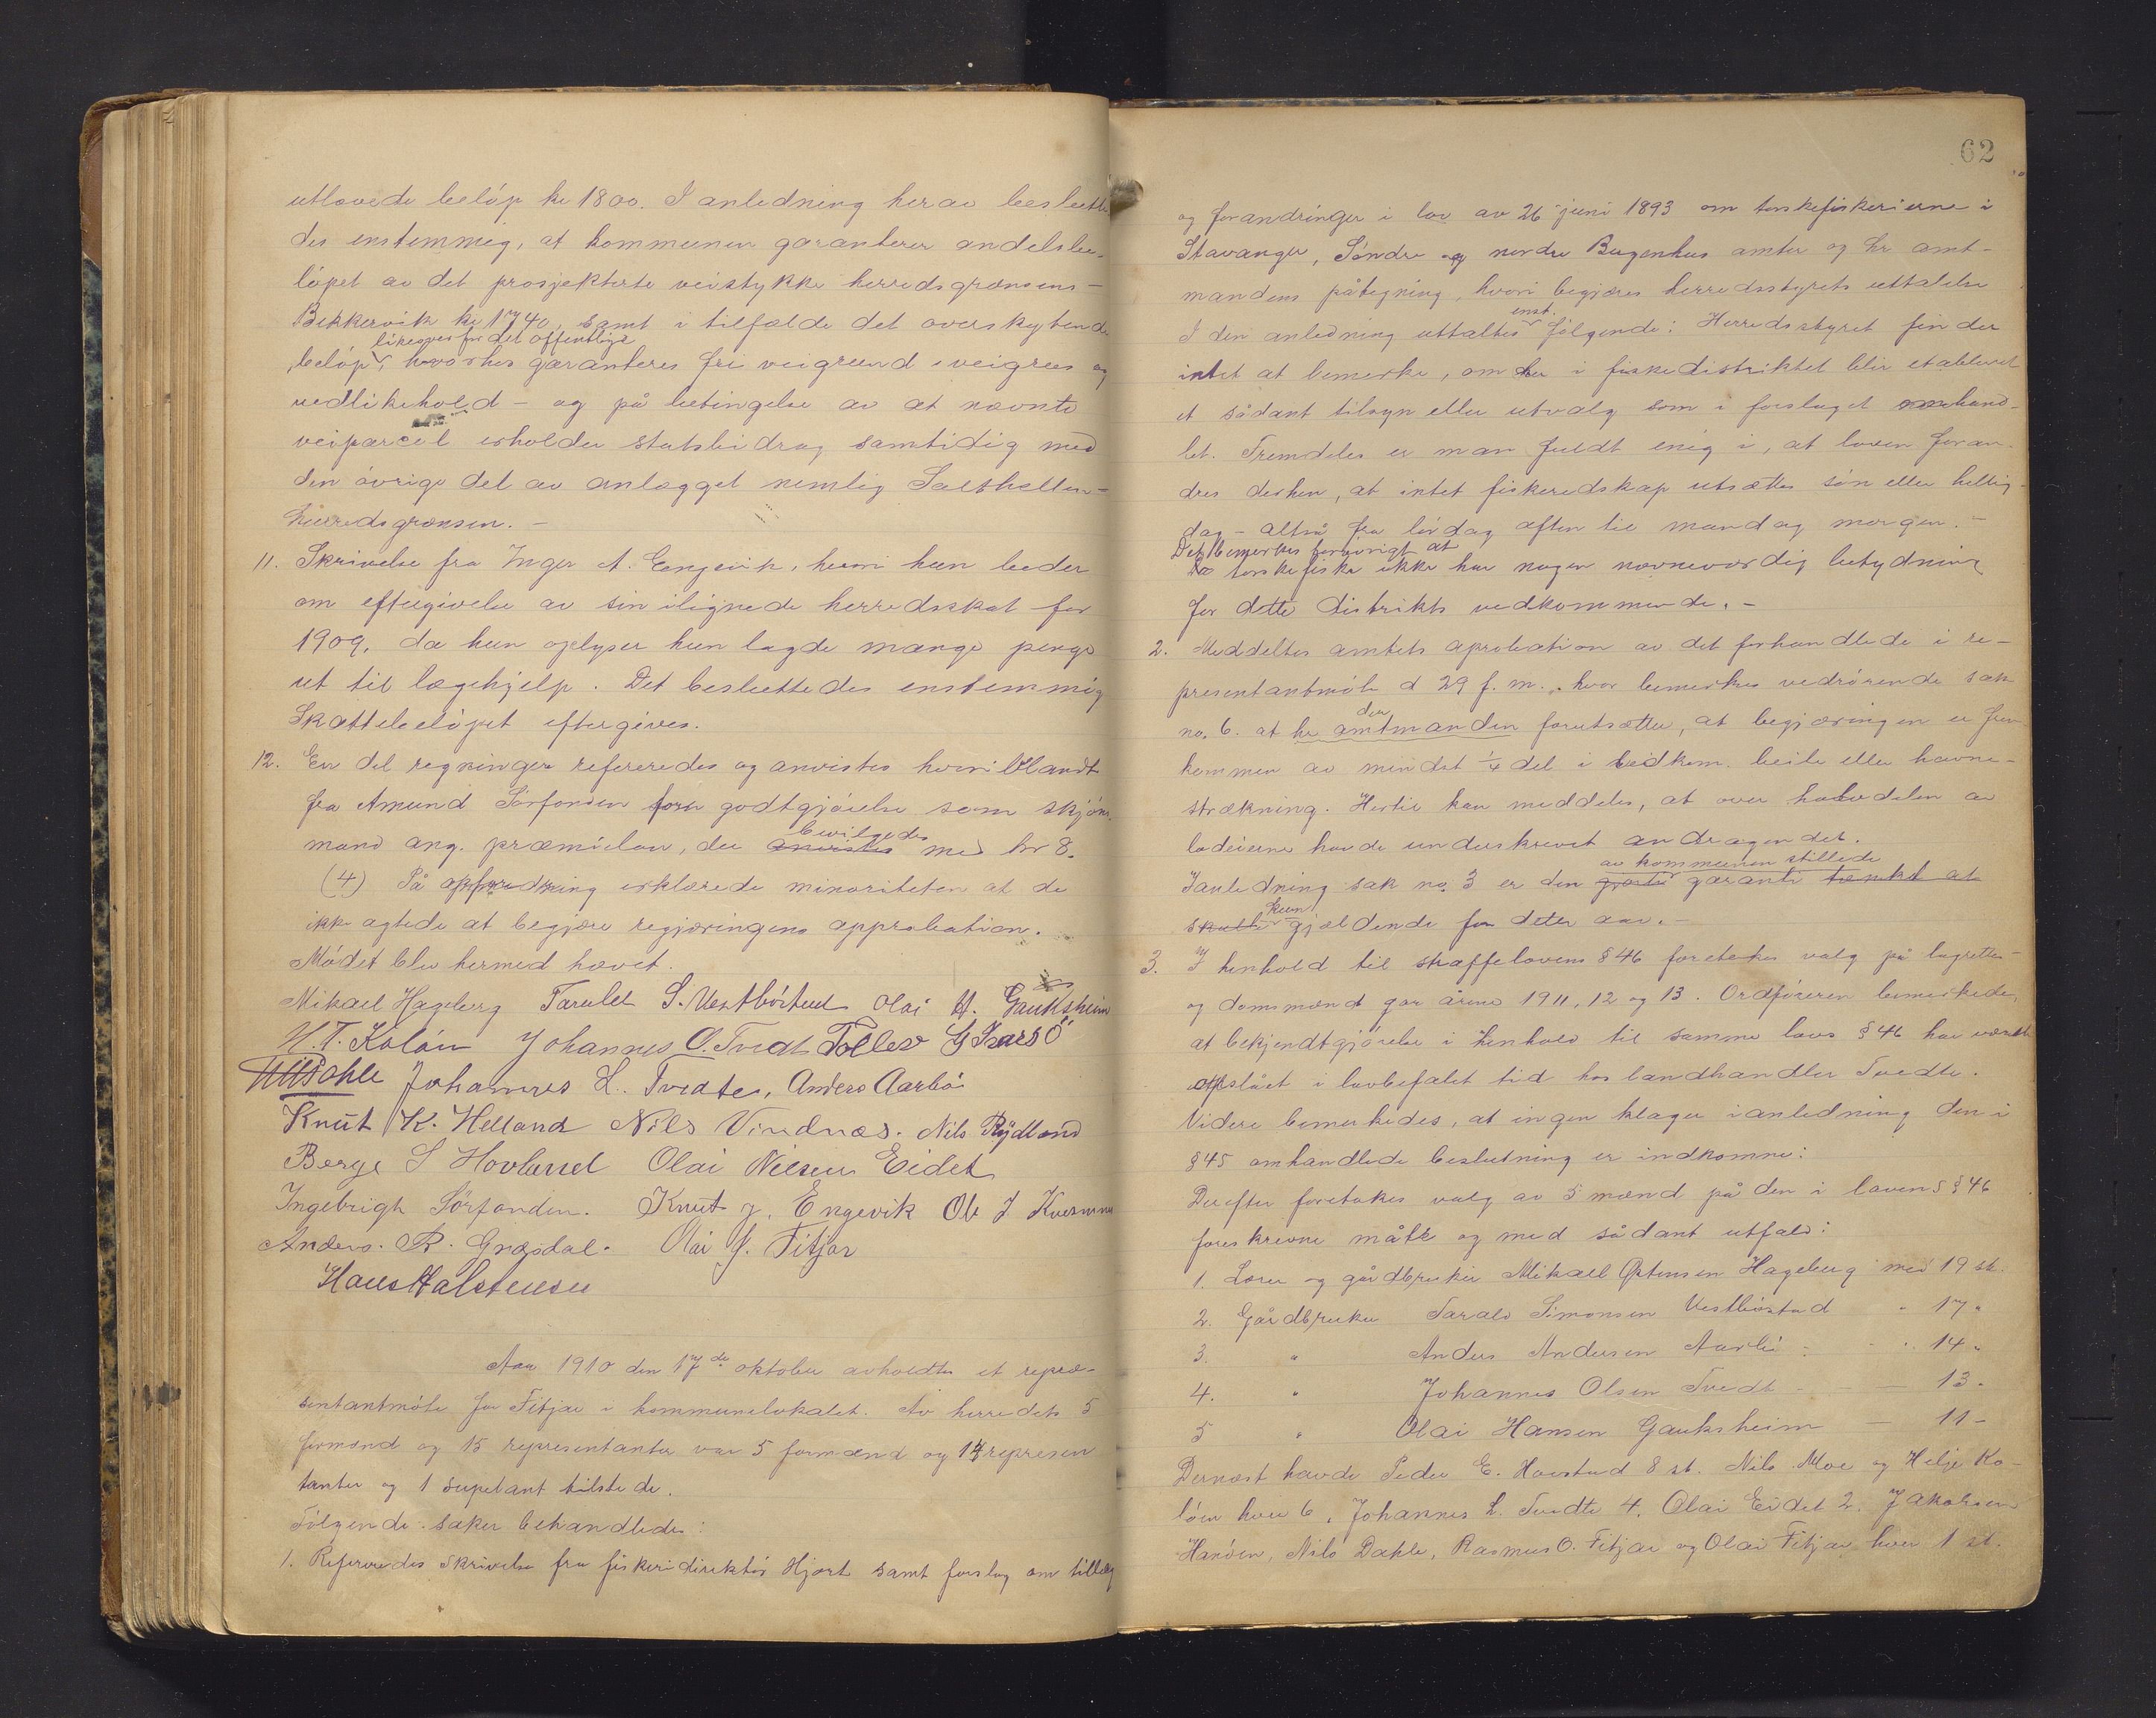 utlovede beløp kr 1800. I anledning herav beslutte-
des enstemmig, at kommunen garanterer andelsbe-
løpet av det prosjekterte veistykke herredsgrænsens –
Bekkervik kr 1740, samt i tilfælde det overskytende
likeoverfor det offentlige
beløp, hvorhos garanteres fri veigrund, veigrus og
vedlikehold – og på betingelse av at nævnte
veiparcel erholder statsbidrag samtidig med
den øvrige del av anlægget nemlig Sælthellen –
herredsgrænsen. –
11. Skrivelse fra Inger A. Engevik, hvori hun beder
om eftergivelse av sin ilignede herredsskat for
1909, da hun oplyser hun lagde mange penge
ut til lægehjelp. Det besluttedes enstemmig
Skattebeløpet eftergives.
12. En del regninger refereredes og anvistes hvoriblandt
fra Amund Sørfonden for godtgjørelse som skjøns-
bevilgedes
mand ang. præmielov, der anvistes med kr 8.
(4) På opfordring erklærede minoriteten at de
ikke agtede at begjære regjæringens approbation.
Mødet blev hermed hævet.
Mikael Hageberg Tarald S. Vestbøstad Olai H. Gauksheim
H. T. Koløen Johannes O. Tvedt Tollev G Isarsö
Dahle Johannes L. Tvedte, Anders Aarbø
Knut K. Helland Nils Vindnæs. Nils Rydland
Berge S Hovland Olai Nilsen Eidet
Ingebrigt Sørfonden. Knut J. Engevik Ole J Kversmo
Anders. R. Græsdal. Olai J. Fitjar
Hans Halstensen
Aar 1910 den 17de oktober avholdtes et repræ-
sentantmøte for Fitjar i kommunelokalet. Av herredets 5
formænd og 15 representanter var 5 formænd og 14 represen
tanter og 1 supleant tilstede.
Følgende saker behandledes:
1. Refereredes skrivelse fra fiskeridirektør Hjort samt forslag om tillæg
62
og forandringer i lov av 26 juni 1893 om torskefiskerierne i
Stavanger, Søndre og nordre Bergenhus amter og hr amt-
mandens påtegning, hvori begjæres herredsstyrets uttalelse
enst.
I den anledning uttaltes følgende: Herredsstyret finder
intet at bemerke, om der i fiskedistriktet blir etableret
et sådant tilsyn eller utvalg som i forslaget omhand-
let. Fremdeles er man fuldt enig i, at loven foran-
dres derhen, at intet fiskeredskap utsættes søn eller hellig-
dag – altså fra lørdag aften til mandag morgen. –
Det bemerkes forøvrigt at
Da torskefiske ikke har nogen nævneværdig betydning
for dette distrikts vedkommende. –
2. Meddeltes amtets aprobation av det forhandlede i re-
presentantmøte d 29 f. m., hvor bemerkes vedrørende sak
den
no. 6. at hr amtmanden forutsætter, at begjæringen er frem
kommen av mindst 1/4 del i vedkom. beite eller havne-
strækning. Hertil kan meddeles, at over halvdelen av
lodeierne havde underskrevet andragendet.
av kommunen stillede
I anledning sak no. 3 er den gjorte garanti tænkt at
kun
skulle gjældende for dette aar. –
3. I henhold til straffelovens § 46 foretokes valg på lagrettes-
og domsmænd for årene 1911, 12 og 13. Ordføreren bemerkede,
at bekjendtgjørelse i henhold til samme lovs § 46 har været
opslået i lovbefalet tid hos landhandler Tvedte.
Videre bemerkedes, at ingen klager i anledning den i
§ 45 omhandlede beslutning er indkomne:
Derefter foretokes valg av 5 mænd på den i lovens § 46
foreskrevne måte og med sådant utfald:
1. Lærer og gårdbruker Mikael Østensen Hageberg med 19 st.
2. Gårdbruker Tarald Simonsen Vestbøstad " 17 "
3. " Anders Andersen Aarbø " 14 "
4. " Johannes Olsen Tvedt – 13 "
5 " Olai Hansen Gauksheim – 11 –
Dernæst havde Peder E. Havstad 8 st. Nils Moe og Helje Ko-
løen hver 6, Johannes L. Tvedte 4, Olai Eidet 2. Jakobsen
Hanøen, Nils Dahle, Rasmus O. Fitjar og Olai Fitjar hver 1 st.